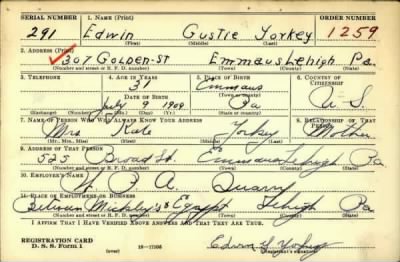 SERIAL NUMBER 1. NAME (Print) ORDER NUMBER
291 Edwin Gustie Yorkey 1259
(First) (Middle) (Last)
2. ADDRESS (Print)
307 Golden-St Emmaus Lehigh Pa.
(Number and street or R. F. D. number) (Town) (County) (State)
3. TELEPHONE 4. AGE IN YEARS 5. PLACE OF BIRTH 6. COUNTRY OF CITIZENSHIP
31 Emmaus
DATE OF BIRTH
July 9 1909 Pa U.S.
(Exchange) (Number) (Mo.) (Day) (Yr.) (State or country)
7. NAME OF PERSON WHO WILL ALWAYS KNOW YOUR ADDRESS 8. RELATIONSHIP OF THAT PERSON
Mrs Kate Yorkey Mother
(Mr., Mrs., Miss) (First) (Middle) (Last)
9. ADDRESS OF THAT PERSON
525 Broad St. Emmaus Lehigh Pa
(Number and street or R. F. D. number) (Town) (County) (State)
10. EMPLOYER'S NAME
W. P. A. Quarry
11. PLACE OF EMPLOYMENT OR BUSINESS
Between Mickley's & Egypt Lehigh Pa
(Number and street or R. F. D. number) (Town) (County) (State)
I AFFIRM THAT I HAVE VERIFIED ABOVE ANSWERS AND THAT THEY ARE TRUE.
REGISTRATION CARD
D. S. S. Form 1 16-17105 Edwin G Yorkey
(Registrant's signature)